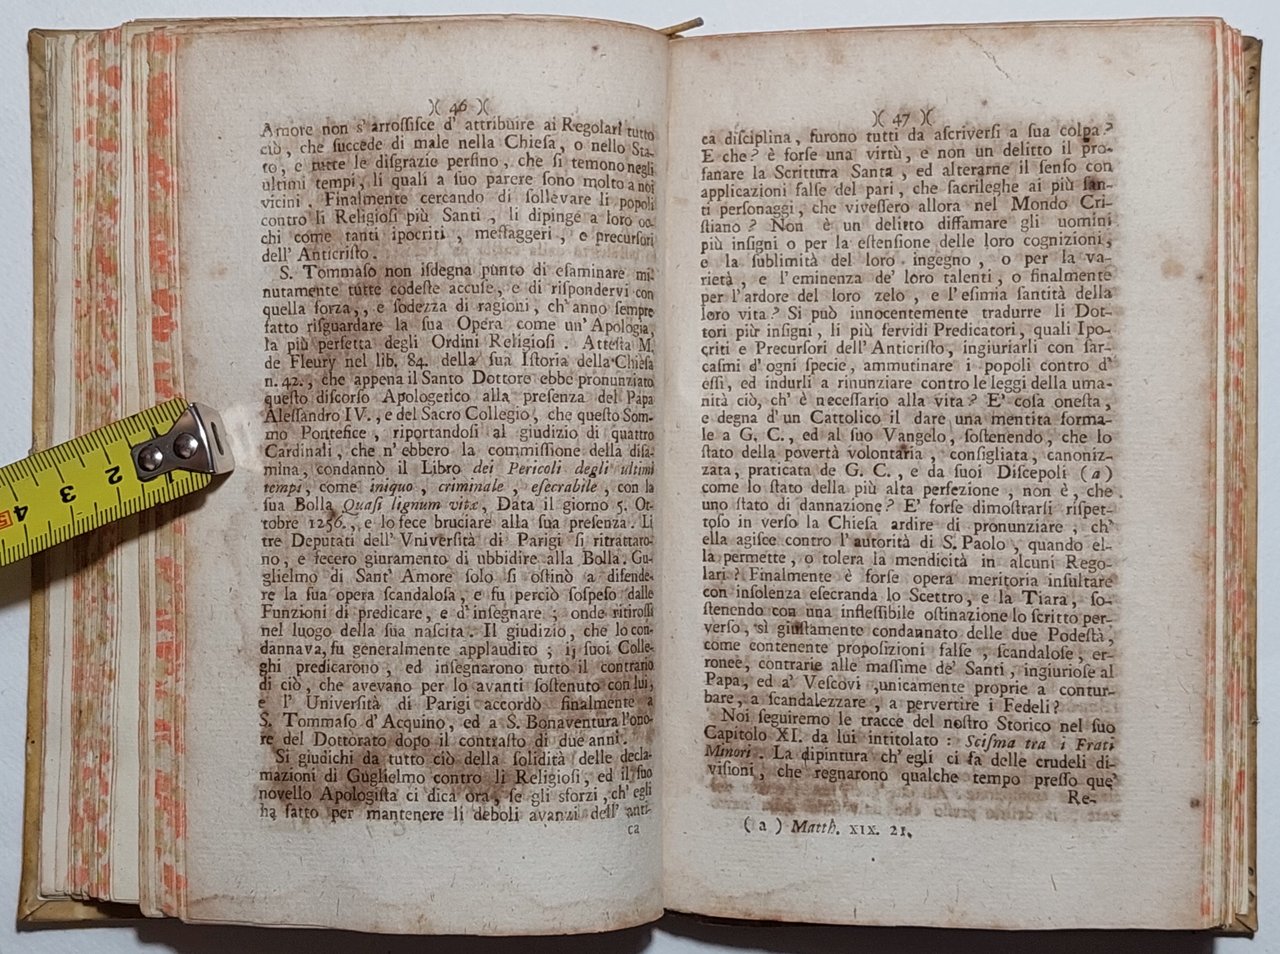 )( 46 )(
Amore non s' arrossisce d' attribuire ai Regolari tutto
ciò, che succede di male nella Chiesa, o nello Sta-
to, e tutte le disgrazie persino, che si temono negli
ultimi tempi, li quali a suo parere sono molto a noi
vicini. Finalmente cercando di sollevare li popoli
contro li Religiosi più Santi, li dipinge a loro oc-
chi come tanti ipocriti, messaggeri, e precursori
dell' Anticristo.
S. Tommaso non isdegna punto di esaminare mi-
nutamente tutte codeste accuse, e di rispondervi con
quella forza,, e sodezza di ragioni, ch' anno sempre
fatto risguardare la sua Opera come un' Apologia,
la più perfetta degli Ordini Religiosi. Attesta M.
de Fleury nel lib. 84. della sua Istoria della Chiesa
n. 42., che appena il Santo Dottore ebbe pronunziato
questo discorso Apologetico alla presenza del Papa
Alessandro IV., e del Sacro Collegio, che questo Som-
mo Pontefice, riportandosi al giudizio di quattro
Cardinali, che n' ebbero la commissione della disa-
mina, condannò il Libro dei Pericoli degli ultimi
tempi, come iniquo, criminale, esecrabile, con la
sua Bolla Quasi lignum vitæ, Data il giorno 5. Ot-
tobre 1256., e lo fece bruciare alla sua presenza. Li
tre Deputati dell' Vniversità di Parigi si ritrattaro-
no, e fecero giuramento di ubbidire alla Bolla. Gu-
glielmo di Sant' Amore solo si ostinò a difende-
re la sua opera scandalosa, e fu perciò sospeso dalle
Funzioni di predicare, e d' insegnare; onde ritirossi
nel luogo della sua nascita. Il giudizio, che lo con-
dannava, fu generalmente applaudito; ij suoi Colle-
ghi predicarono, ed insegnarono tutto il contrario
di ciò, che avevano per lo avanti sostenuto con lui,
e l' Università di Parigi accordò finalmente a
S. Tommaso d' Acquino, ed a S. Bonaventura l'ono-
re del Dottorato dopo il contrasto di due anni.
Si giudichi da tutto ciò della solidità delle decla-
mazioni di Guglielmo contro li Religiosi, ed il suo
novello Apologista ci dica ora, se gli sforzi, ch' egli
ha fatto per mantenere li deboli avanzi dell' anti-
ca
)( 47 )(
ca disciplina, furono tutti da ascriversi a sua colpa?
E che? è forse una virtù, e non un delitto il pro-
fanare la Scrittura Santa, ed alterarne il senso con
applicazioni false del pari, che sacrileghe ai più san-
ti personaggi, che vivessero allora nel Mondo Cri-
stiano? Non è un delitto diffamare gli uomini
più insigni o per la estensione delle loro cognizioni,
e la sublimità del loro ingegno, o per la va-
rietà, e l' eminenza de' loro talenti, o finalmente
per l' ardore del loro zelo, e l' esimia santità della
loro vita? Si può innocentemente tradurre li Dot-
tori più insigni, li più fervidi Predicatori, quali Ipo-
criti e Precursori dell' Anticristo, ingiuriarli con sar-
casmi d' ogni specie, ammutinare i popoli contro d'
essi, ed indurli a rinunziare contro le leggi della uma-
nità ciò, ch' è necessario alla vita? E' cosa onesta,
e degna d' un Cattolico il dare una mentita forma-
le a G. C., ed al suo Vangelo, sostenendo, che lo
stato della povertà volontaria, consigliata, canoniz-
zata, praticata de G. C., e da suoi Discepoli (a)
come lo stato della più alta perfezione, non è, che
uno stato di dannazione? E' forse dimostrarsi rispet-
toso in verso la Chiesa ardire di pronunziare, ch'
ella agisce contro l' autorità di S. Paolo, quando el-
la permette, o tolera la mendicità in alcuni Rego-
lari? Finalmente è forse opera meritoria insultare
con insolenza esecranda lo Scettro, e la Tiara, so-
stenendo con una inflessibile ostinazione lo scritto per-
verso, sì giustamente condannato delle due Podestà,
come contenente proposizioni false, scandalose, er-
ronee, contrarie alle massime de' Santi, ingiuriose al
Papa, ed a' Vescovi ,unicamente proprie a contur-
bare, a scandalezzare, a pervertire i Fedeli?
Noi seguiremo le tracce del nostro Storico nel suo
Capitolo XI. da lui intitolato: Scisma tra i Frati
Minori. La dipintura ch' egli ci fa delle crudeli di-
visioni, che regnarono qualche tempo presso que'
Re-
(a) Matth. XIX. 21.
1
2
3
4
5